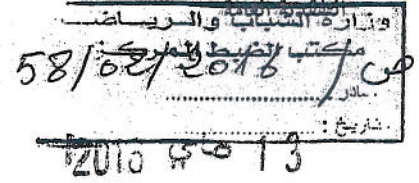 وزارة الشباب والرياضة
مكتب الضبط المركزي
58/02/2016/ص
صادر ..............................
تاريخ : ..............................
13 ماي